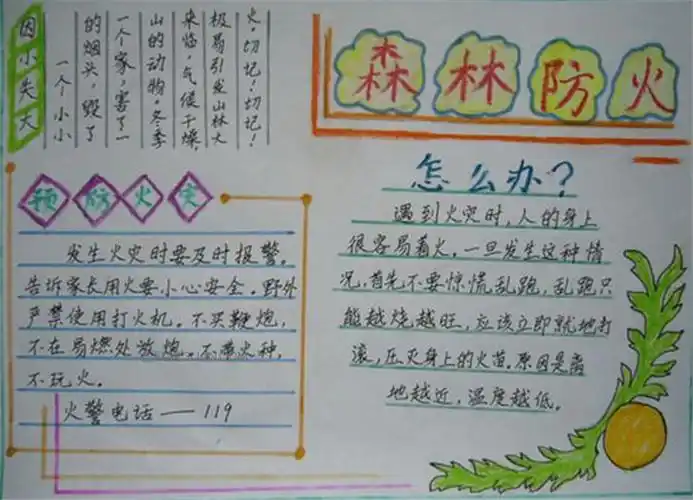 因小失大
一个小小
的烟头，毁了
一个家，害了一
山的动物。冬季
来临，气候干燥，
极易引发山林大
火，切记！切记！
森林防火
预防火灾
发生火灾时要及时报警。
告诉家长用火要小心安全。野外
严禁使用打火机。不买鞭炮，
不在易燃处放炮。不带火种，
不玩火。
火警电话——119
怎么办？
遇到火灾时，人的身上
很容易着火，一旦发生这种情
况，首先不要惊慌乱跑，乱跑只
能越烧越旺，应该立即就地打
滚，压灭身上的火苗，原因是离
地越近，温度越低。